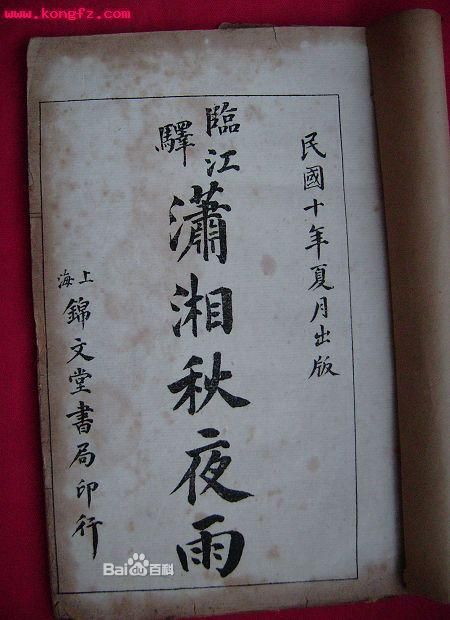 www.kongfz.com
民國十年夏月出版
臨江
驛
瀟湘秋夜雨
上
海
錦文堂書局印行
Bai百科